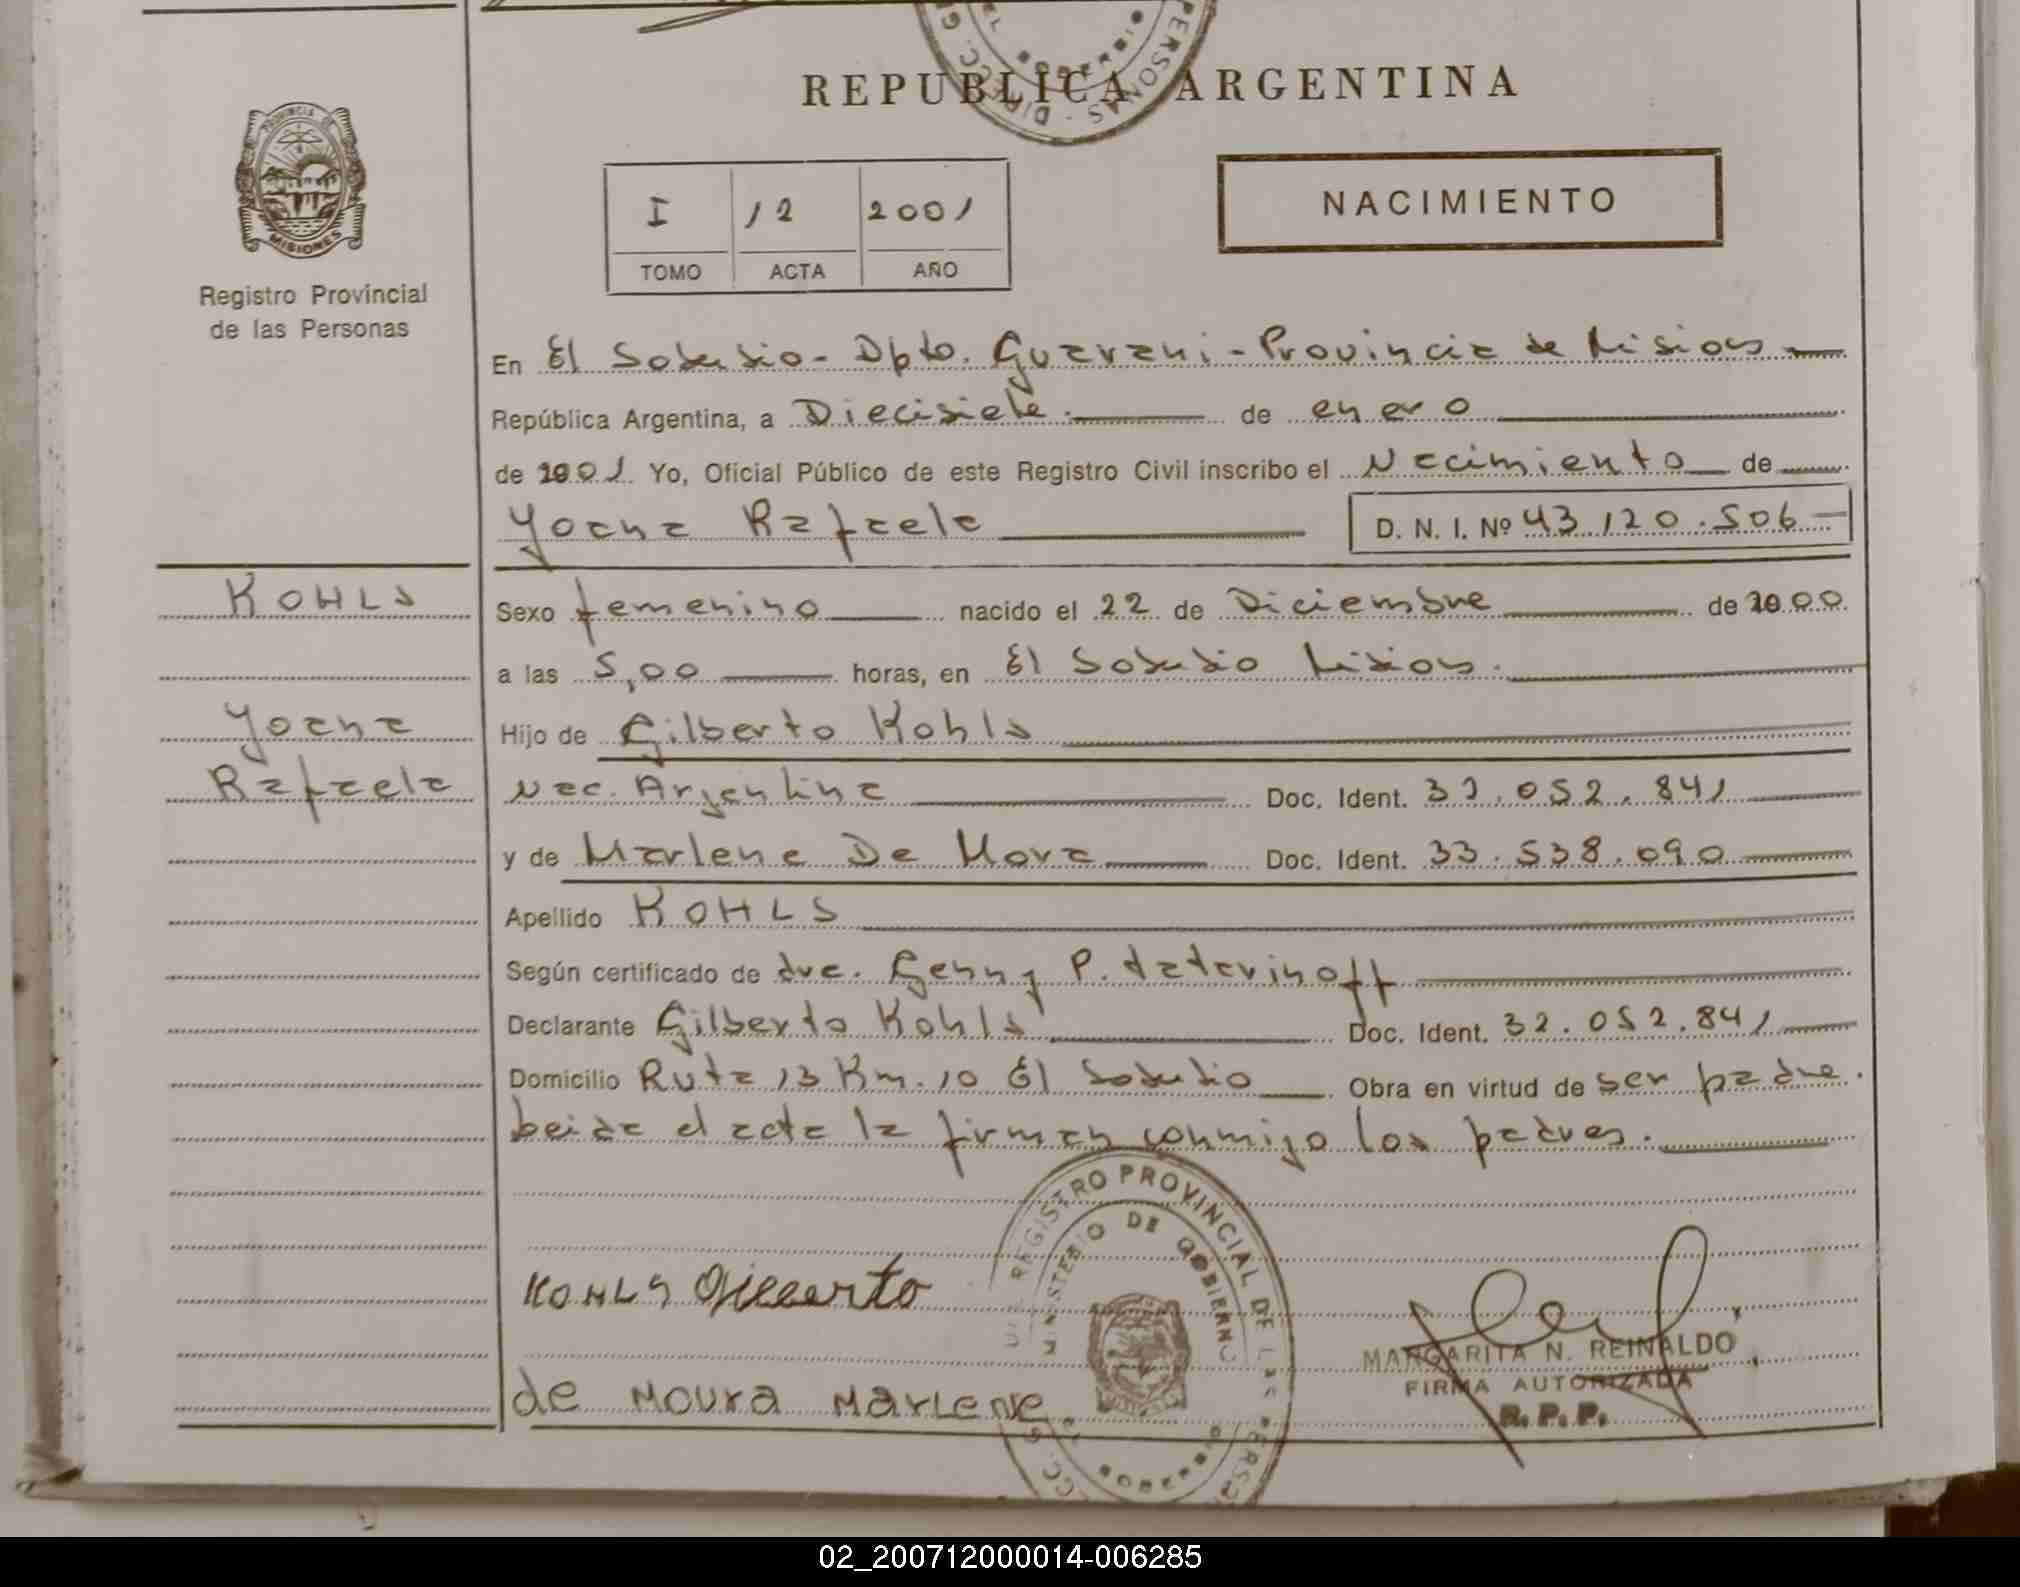 REPUBLICA ARGENTINA
PROVINCIA DE
MISIONES
Registro Provincial
de las Personas
I 12 2001
TOMO ACTA AÑO
NACIMIENTO
En El Soberbio - Dpto. Guarani - Provincia de Misiones
República Argentina, a Diecisiete de enero
de 2001 Yo, Oficial Público de este Registro Civil inscribo el Nacimiento de
Yoana Rafaela D. N. I. Nº 43.120.506
KOHLS
Yoana
Rafaela
Sexo femenino nacido el 22 de Diciembre de 2000
a las 5,00 horas, en El Soberbio Misiones.
Hijo de Gilberto Kohls
Nac. Argentina Doc. Ident. 32.052.841
y de Marlene De Mora Doc. Ident. 33.538.090
Apellido KOHLS
Según certificado de dra. Genny P. tatarinoff
Declarante Gilberto Kohls Doc. Ident. 32.052.841
Domicilio Ruta 13 Km. 10 El Soberbio Obra en virtud de ser padre.
Leida el acta la firman conmigo los padres.
REGISTRO PROVINCIAL DE LAS PERSONAS
MINISTERIO DE GOBIERNO
KOHLS Gilberto
de MOURA MARLENE
MARGARITA N. REINALDO
FIRMA AUTORIZADA
R.P.P.
02_200712000014-006285